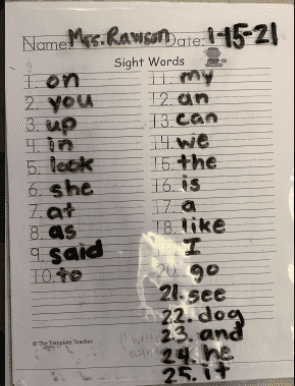 Name: Mrs. Rawson Date: 1-15-21
Sight Words
1. on
2. you
3. up
4. in
5. look
6. she
7. at
8. as
9. said
10. to
11. my
12. an
13. can
14. we
15. the
16. is
17. a
18. like
I
20. go
21. see
22. dog
23. and
24. he
25. it
© The Template Teacher